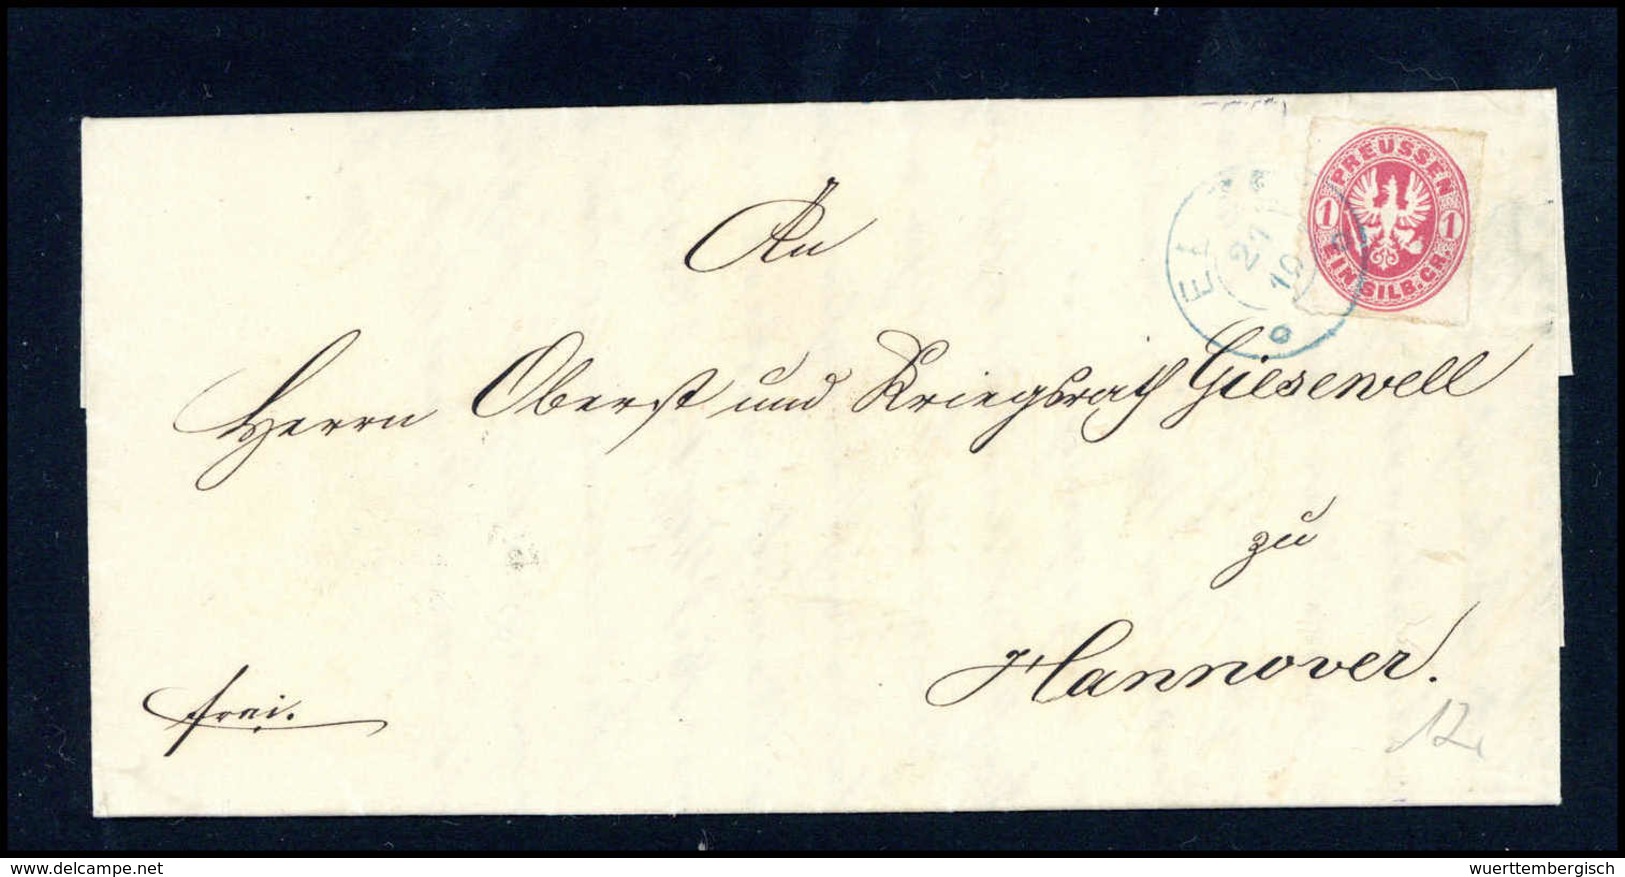 PREUSSEN
1 1
EIN SILB. GR.
An
Herrn Oberst und Kriegsrath Giesewell
zu
Hannover.
frei.
12
delcampe.net
wuerttembergisch